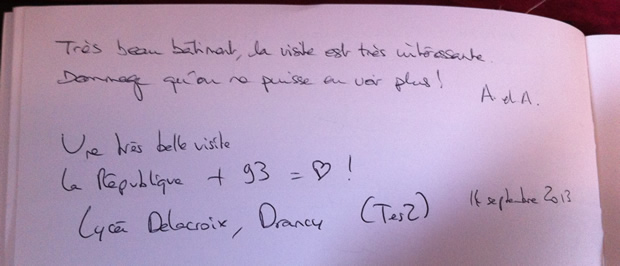 Très beau bâtiment, la visite est très intéressante.
Dommage qu'on ne puisse en voir plus !
A. et A.
Une très belle visite
la République + 93 = ♡ !
Lycée Delacroix, Drancy (TES2)
14 septembre 2013